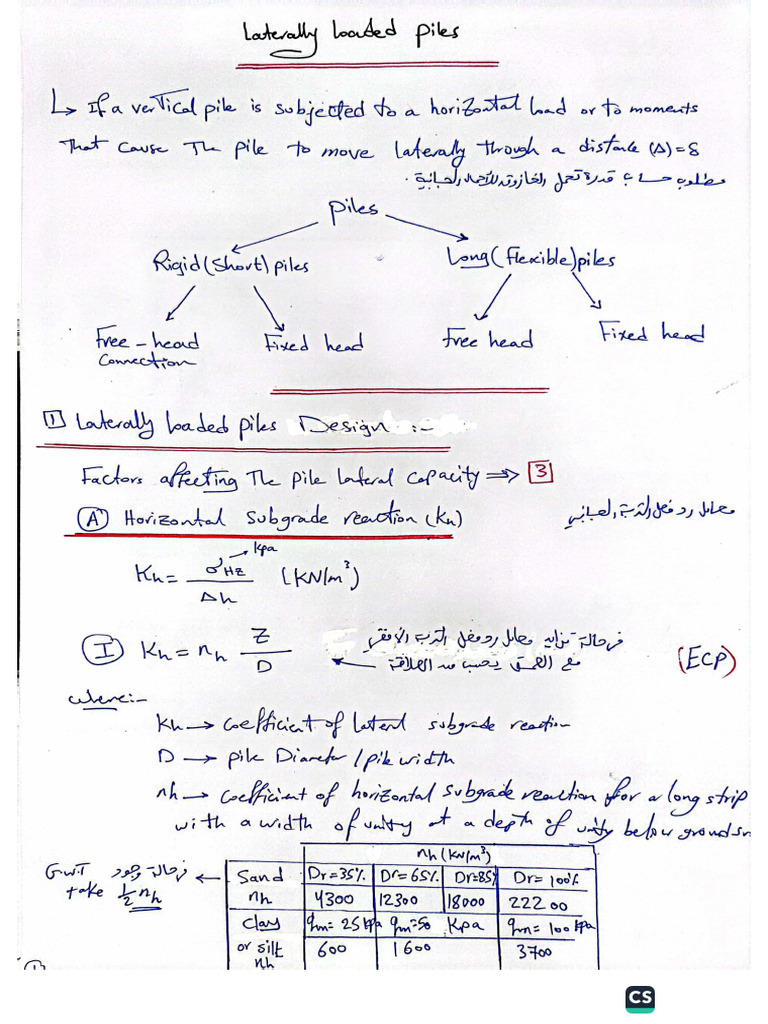 Laterally loaded piles
↳ If a vertical pile is subjected to a horizontal load or to moments
That cause The pile to move laterally through a distance (Δ)=δ
مطلوب حساب قدرة تحمل الخازوق للأحمال الجانبية.
piles
Rigid (short) piles
Long (flexible) piles
Free-head connection
Fixed head
Free head
Fixed head
1 Laterally loaded piles Design :-
Factors affecting The pile lateral capacity ⇒ 3
A Horizontal subgrade reaction (Kh)
معامل رد فعل التربة الجانبي
Kh = σHz / Δh (KN/m³)
kpa
I Kh = nh Z / D
فى حالة تزايد معامل رد فعل التربة الأفقى
مع العمق يحسب من العلاقة
(ECP)
where:-
Kh → Coefficient of lateral subgrade reaction
D → pile Diameter / pile width
nh → Coefficient of horizontal subgrade reaction for a long strip
with a width of unity at a depth of unity below ground
nh (KN/m³)
Sand Dr=35% Dr=65% Dr=85% Dr=100%
nh 4300 12300 18000 22200
clay qun=25 kpa qun=50 kpa qun=100 kpa
or silt nh 600 1600 3700
فى حالة وجود GWT
take ½ nh
CS